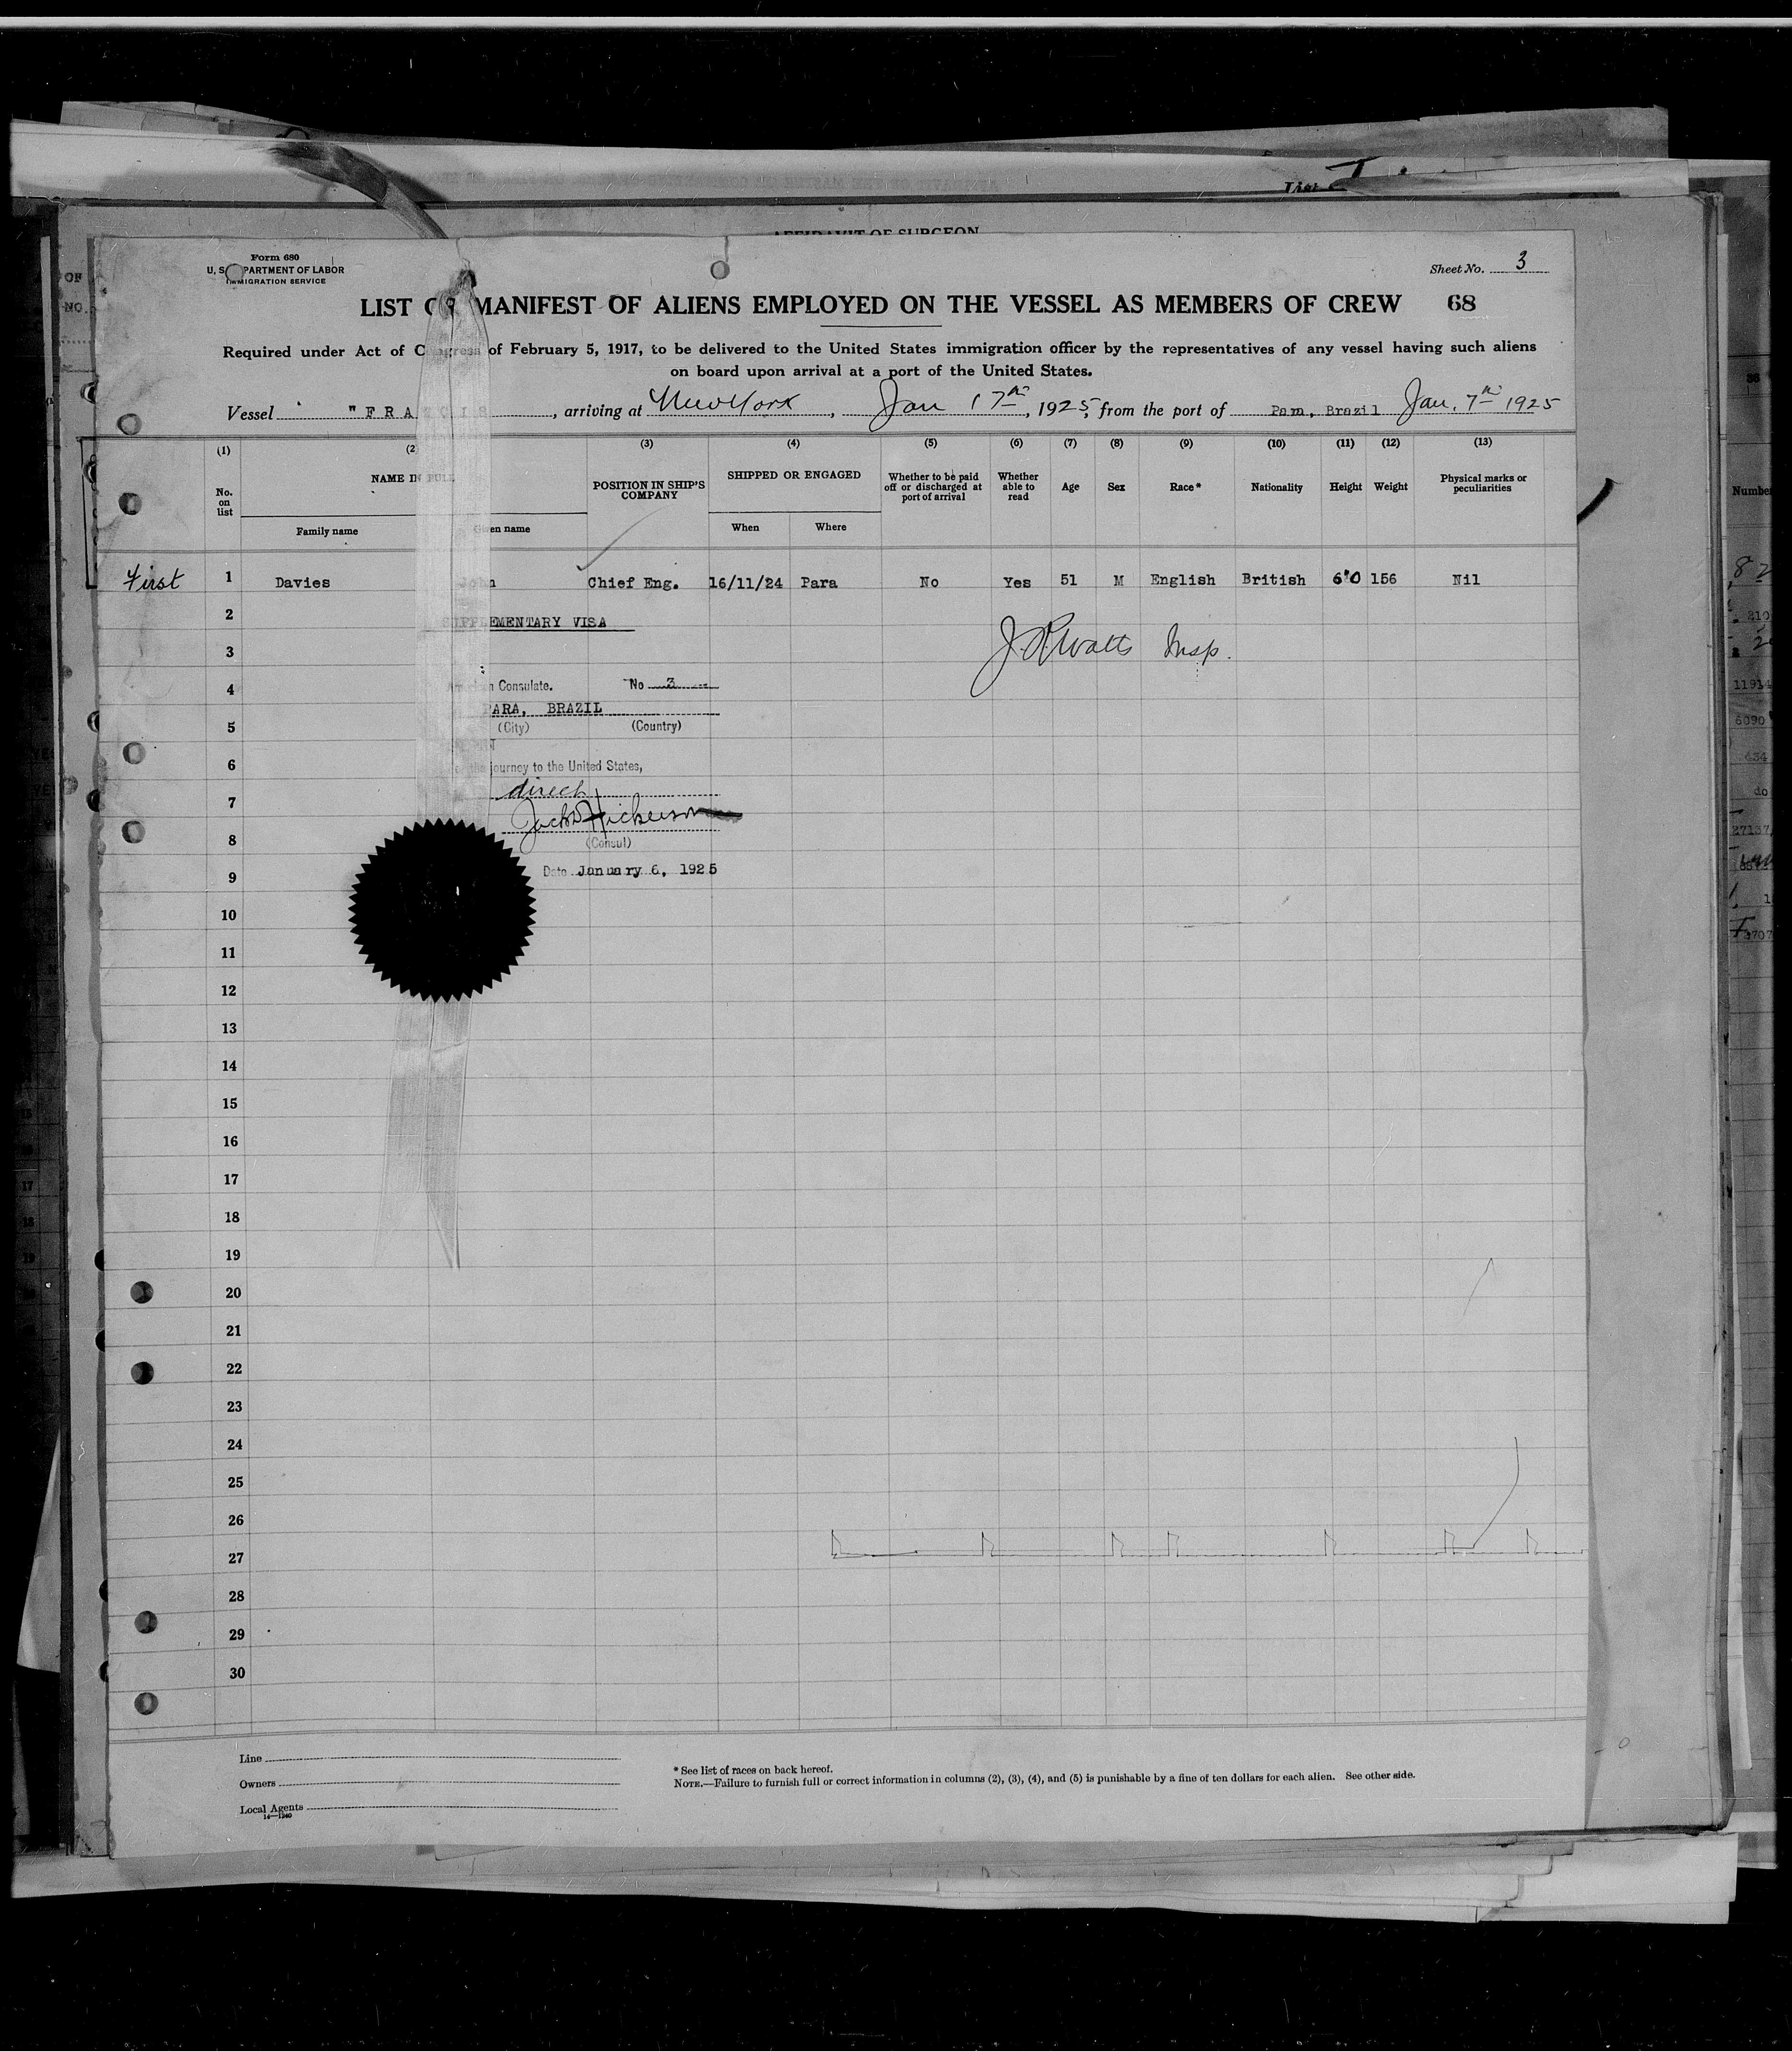 AFFIDAVIT OF SURGEON
Form 680
U. S. DEPARTMENT OF LABOR
IMMIGRATION SERVICE
Sheet No. 3
LIST OR MANIFEST OF ALIENS EMPLOYED ON THE VESSEL AS MEMBERS OF CREW 68
Required under Act of Congress of February 5, 1917, to be delivered to the United States immigration officer by the representatives of any vessel having such aliens
on board upon arrival at a port of the United States.
Vessel "FRANCIS , arriving at New York , Jan 17th , 1925, from the port of Para, Brazil Jan. 7th 1925
(1) (2 (3) (4) (5) (6) (7) (8) (9) (10) (11) (12) (13)
No. on list NAME IN FULL POSITION IN SHIP'S COMPANY SHIPPED OR ENGAGED Whether to be paid off or discharged at port of arrival Whether able to read Age Sex Race* Nationality Height Weight Physical marks or peculiarities
Family name Given name When Where
First 1 Davies John Chief Eng. 16/11/24 Para No Yes 51 M English British 6'0 156 Nil
2 SUPPLEMENTARY VISA
3 J.R. Watts Insp.
4 American Consulate. No 3
PARA, BRAZIL
5 (City) (Country)
6 the journey to the United States,
7 direct
Jack D Hickerson
8 (Consul)
9 Date January 6, 1925
10
11
12
13
14
15
16
17
18
19
20
21
22
23
24
25
26
27
28
29
30
Line
Owners
Local Agents
14—1240
* See list of races on back hereof.
NOTE.—Failure to furnish full or correct information in columns (2), (3), (4), and (5) is punishable by a fine of ten dollars for each alien. See other side.